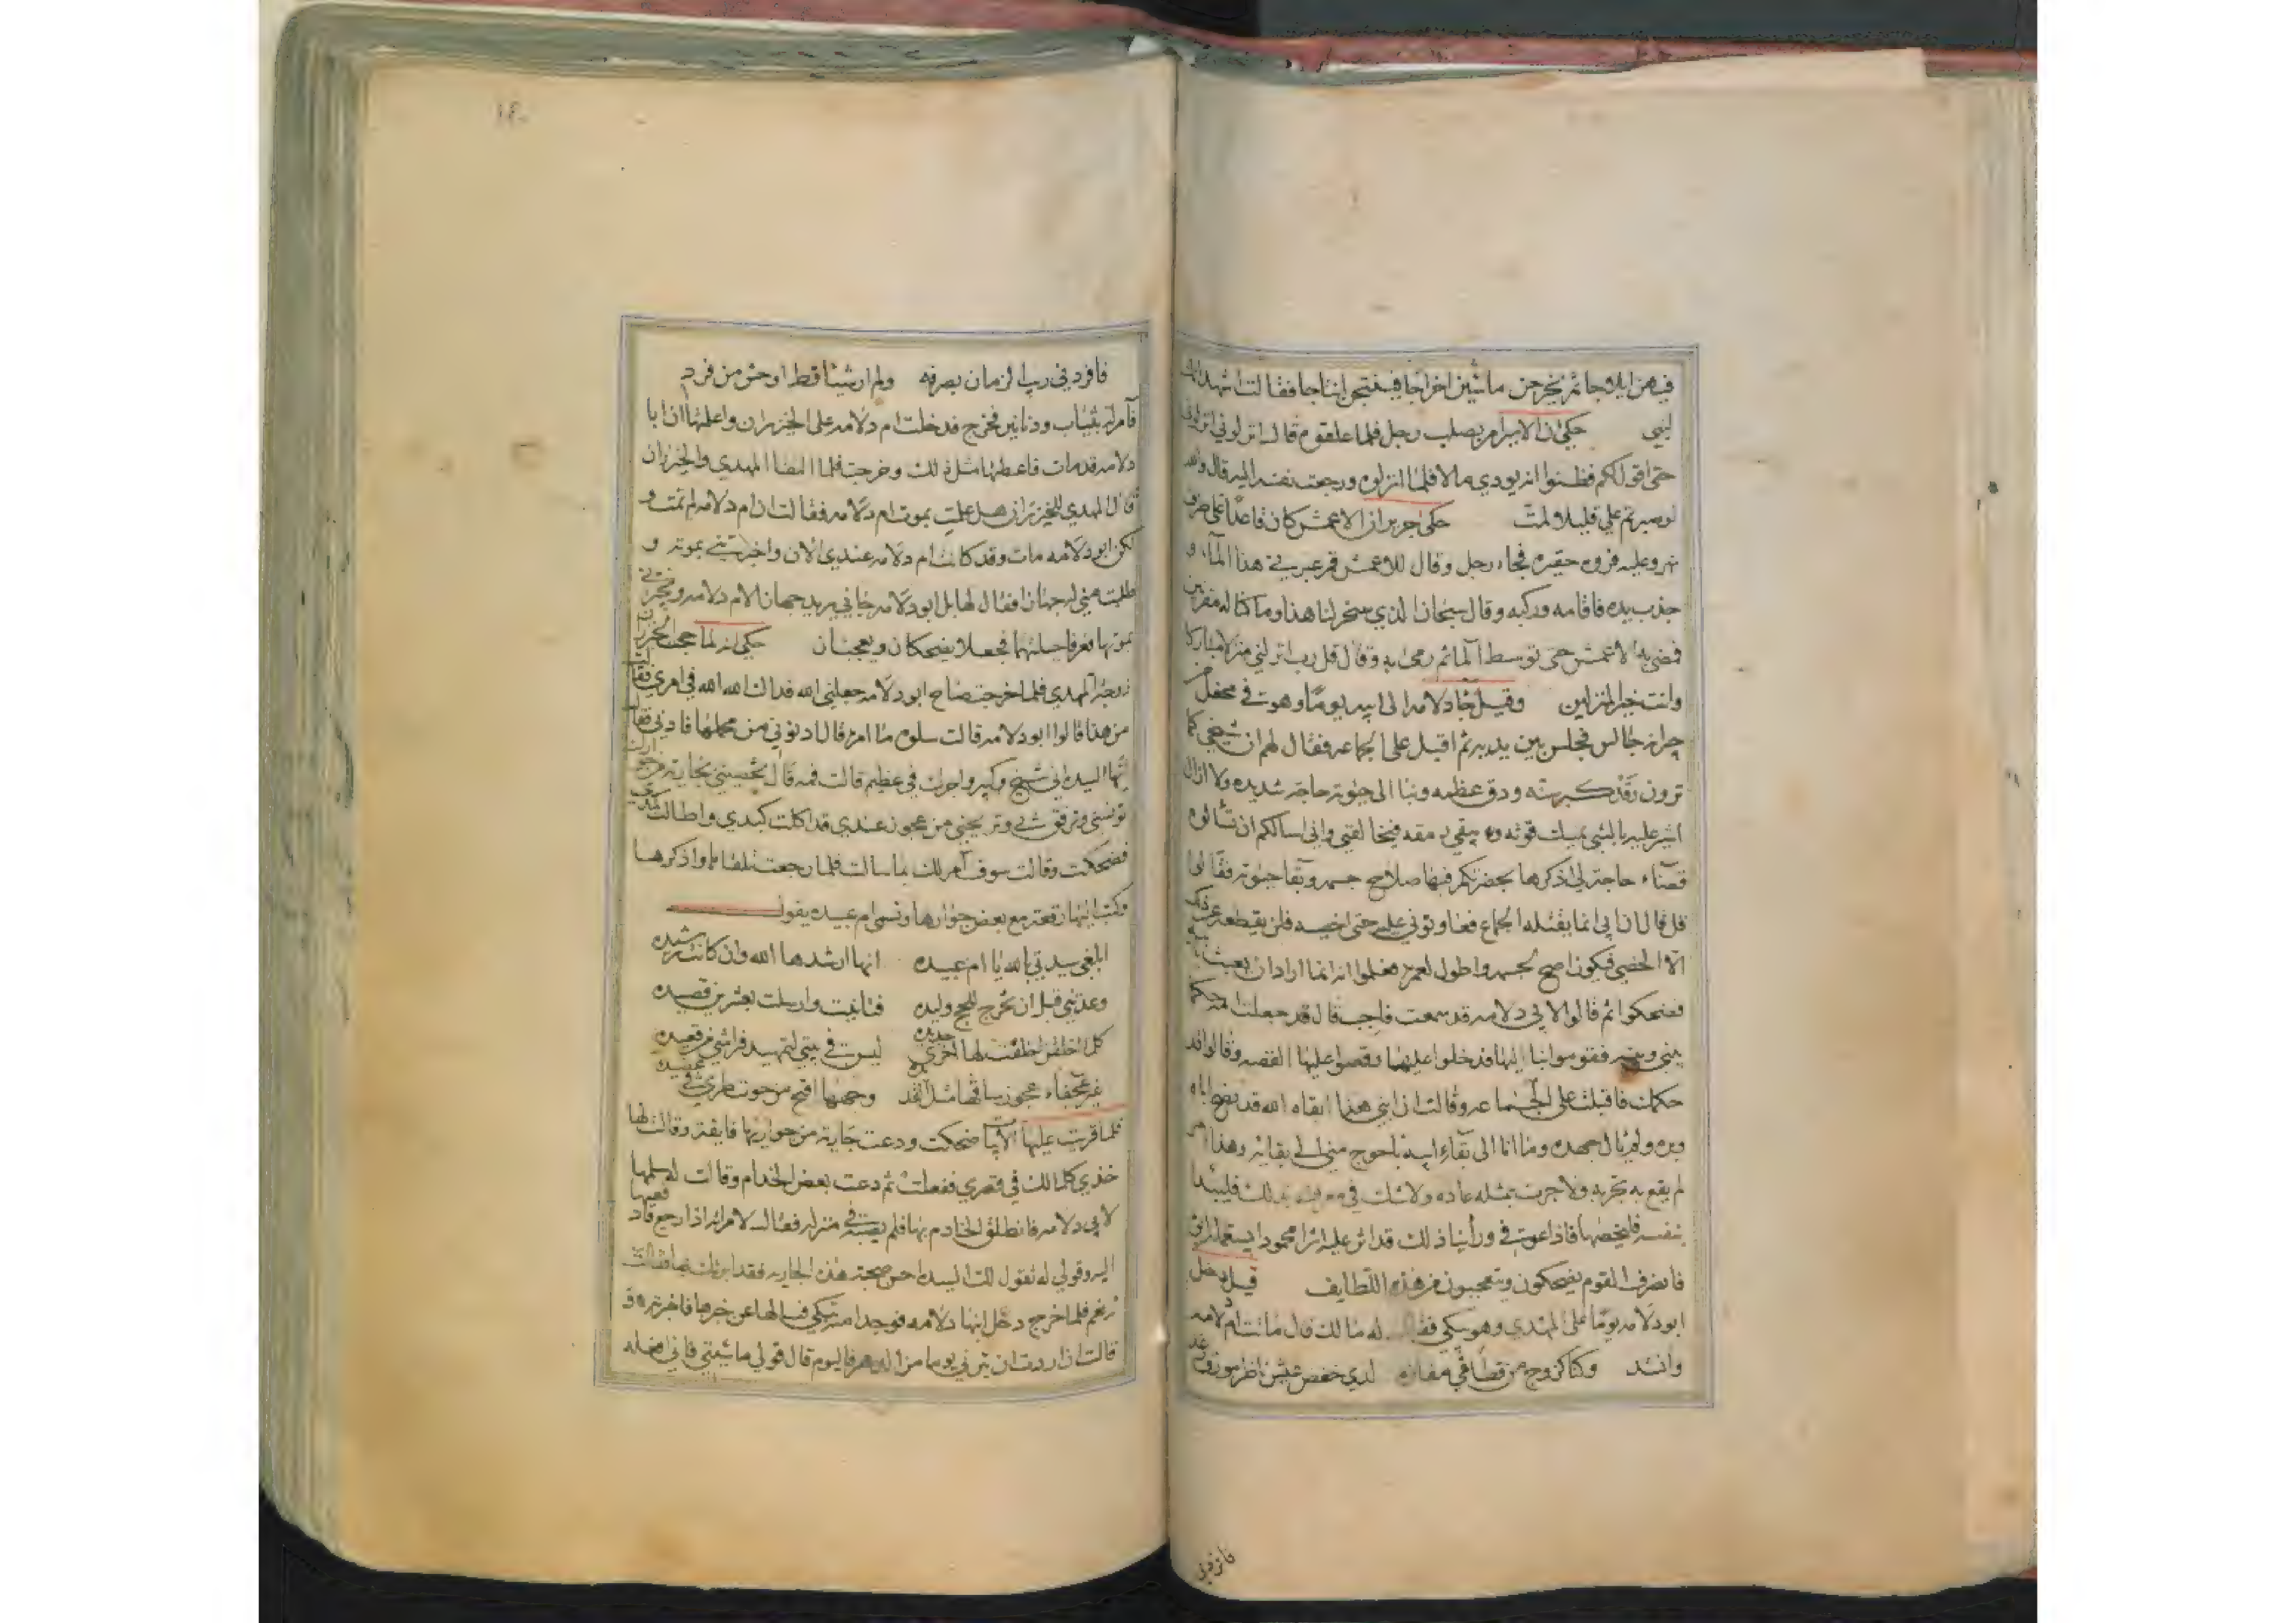 في هن ايلاوجا ثم يخرجن ماشين اخراجا فينتجن انتاجا فقالت اشهد انك
لنبي حكي ان الامير امر بصلب رجل فلما علقوه قال انزلوني انزلوني
حتى اقول لكم فظنوا انه يودي مالا فلما انزلوه ورجعت نفسه اليه قال والله
لو صبرتم علي قليلا لمت حكى جرير ان الاعمش كان قاعدا على طرف
نهر وعليه فروه حقيره فجاءه رجل وقال للاعمش قم عبرني هذا الماء و
جذب بيده فاقامه وركبه وقال سبحان الذي سخر لنا هذا وما كنا له مقرنين
فمضى به الاعمش حتى توسط الماء ثم رمى به وقال قل رب انزلني منزلا مباركا
وانت خير المنزلين وقيل جاء دلامه الى ابيه يوما وهو في محفل من
جيرانه جالس فجلس بين يديه ثم اقبل على الجماعه فقال لهم ان شيخي كما
ترون قد كبر سنه ودق عظمه وبنا الى حيوته حاجة شديده ولا ازال
اشير عليه بالشي يمسك قوته و يبقي رمقه فيخالفني واني اسالكم ان تسالوه
قضاء حاجة لي اذكرها بحضرتكم فيها صلاح جسمه وبقا حيوته فقالوا
قل قال ان ابي انما يقتله الجماع فعاونوني عليه حتى اخصيه فلن يقطعه عن ذلك
الا الخصي فيكون اصح لجسمه واطول لعمره فعلموا انه انما اراد ان يعبث بابيه
فضحكوا ثم قالوا لابي دلامه قد سمعت فاجب قال قد جعلت امه حكما
بيني وبينه فقوموا بنا اليها فدخلوا عليها وقصوا عليها القصه وقالوا قد
حكمت فاقبلت على الجماعه وقالت ان ابني هذا ابقاه الله قد نصح اباه
وبره ولم يال جهده وما انا الى بقاء ابيه باحوج مني الى بقائه وهذا امر
لم يقع به تجربه ولا جرت بمثله عاده ولا شك في معرفته بذلك فليبدا
بنفسه فليخصها فاذا عوفي وراينا ذلك قد اثر عليه اثرا محمودا يستعمله ابوه
فانصرف القوم يضحكون ويتعجبون من هذه اللطايف قيل دخل
ابو دلامه يوما على المهدي وهو يبكي فقال له ما لك قال ماتت ام دلامه
وانشد وكنا كزوج من قطا في مفازه لدي خفض عيش ناظر مونق رغد
فافردني
١٤٠
فافردني ريب الزمان بصرفه ولم ار شيئا قط اوحش من فرد
فامر له بثياب ودنانير فخرج فدخلت ام دلامه على الخيزران واعلمتها ان ابا
دلامه قد مات فاعطتها مثل ذلك وخرجت فلما التقا المهدي والخيزران
قال المهدي للخيزران هل علمت بموت ام دلامه فقالت ان ام دلامه لم تمت و
لكن ابو دلامه مات وقد كانت ام دلامه عندي الان واخبرتني بموته و
طلبت مني له جهازا فقال لها بل ابو دلامه جاني يريد جهازا لام دلامه ويخبرني
بموتها فعرفا حيلتهما فجعلا يضحكان ويعجبان حكي انه لما حج الخيزران
زوجة المهدي فلما خرجت صاح ابو دلامه جعلني الله فداك الله الله في امري فقالت
من هذا قالوا ابو دلامه قالت سلوه ما امره قال ادنوني من محملها فادني فقال
ايها السيده اني شيخ كبير واجرك في عظيم قالت فمه قال تخصيني بجاريه من جواريك
تونسني وترفق بي وتريحني من عجوز عندي قد اكلت كبدي واطالت كدي
فضحكت وقالت سوف آمر لك بما سالت فلما رجعت تلقاها واذكرها
وكتب اليها رقعة مع بعض جوارها وتسمى ام عبيده يقول
ابلغي سيدتي بالله يا ام عبيده انها ارشدها الله وان كانت رشيده
وعدتني قبل ان تخرج للحج وليده فتانيت وارسلت بعشرين قصيده
كلما اخلقن اخلفت لها اخرى جديده ليس في بيتي لتمهيد فراشي من قعيده
غير عجفاء عجوز ساقها مثل القديده وجهها اقبح من حوت طري في عصيده
فلما قريت عليها الابيات ضحكت ودعت جارية من جواريها فايقة وقالت لها
خذي كلما لك في قصري ففعلت ثم دعت بعض الخدام وقالت له سلمها
لابي دلامه فانطلق الخادم بها فلم يصبه في منزله فقال لامراته اذا رجع فادفعيها
اليه وقولي له تقول لك السيده احسن صحبة هذه الجاريه فقد امرت لك بها فقالت
نعم فلما خرج دخل ابنها دلامه فوجد امه تبكي فسالها عن خبرها فاخبرته و
قالت ان اردت ان تبرني يوما من الدهر فاليوم قال قولي ما شيتي فاني افعله